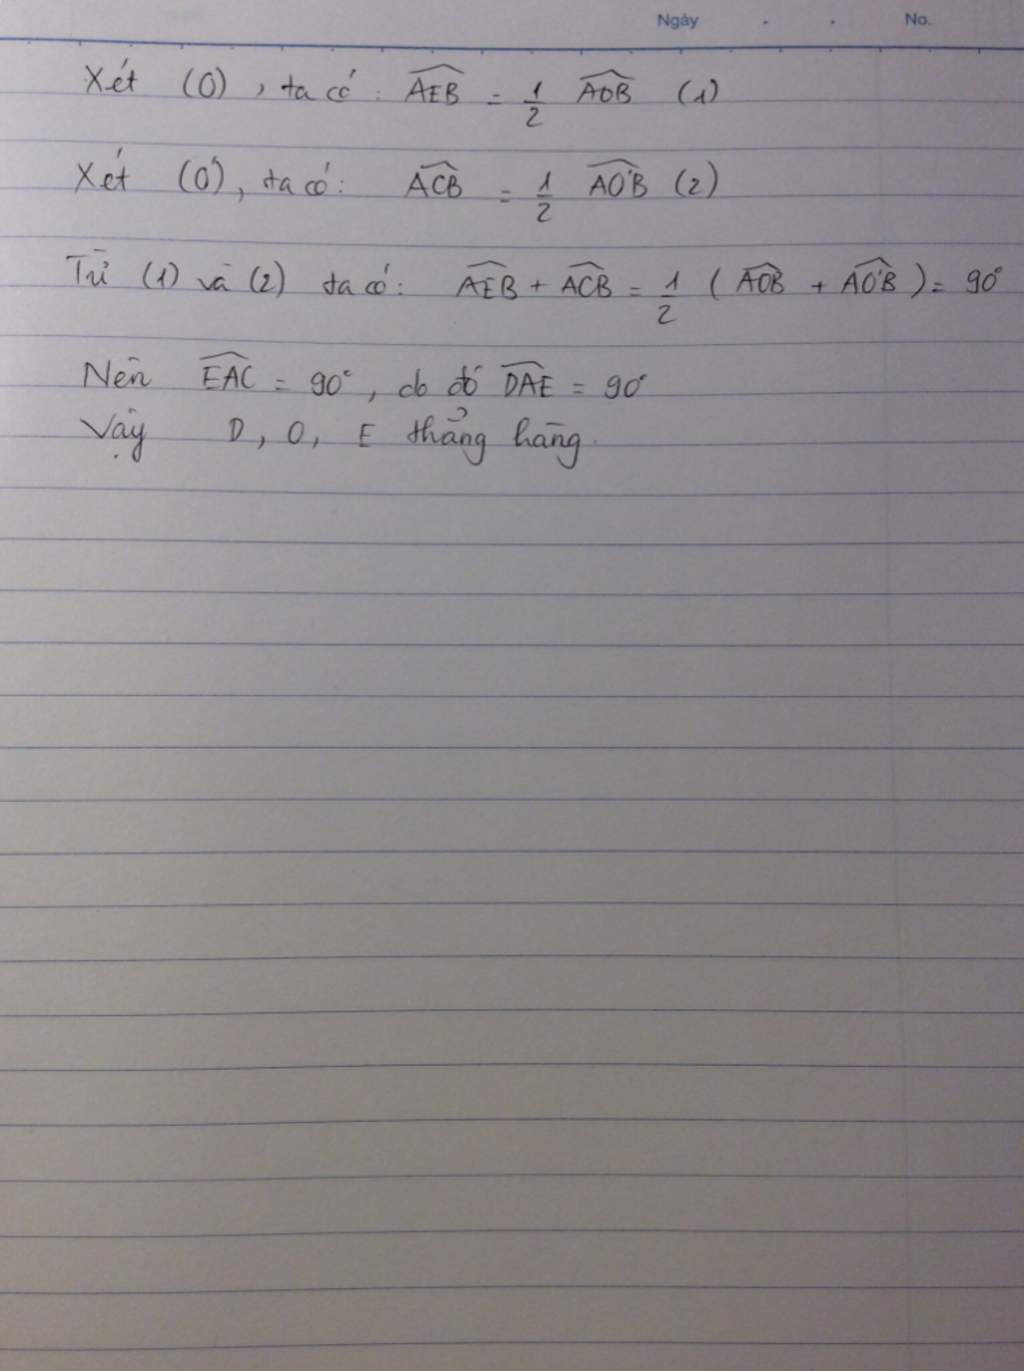 Ngày . . No.
Xét (O), ta có: $\widehat{AEB} = \frac{1}{2} \widehat{AOB}$ (1)
Xét (O'), ta có: $\widehat{ACB} = \frac{1}{2} \widehat{AO'B}$ (2)
Từ (1) và (2) ta có: $\widehat{AEB} + \widehat{ACB} = \frac{1}{2} (\widehat{AOB} + \widehat{AO'B}) = 90°$
Nên $\widehat{EAC} = 90°$, do đó $\widehat{DAE} = 90°$
Vậy D, O, E thẳng hàng.